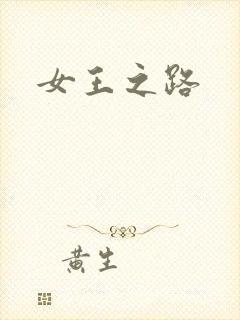 女王之路
黄生